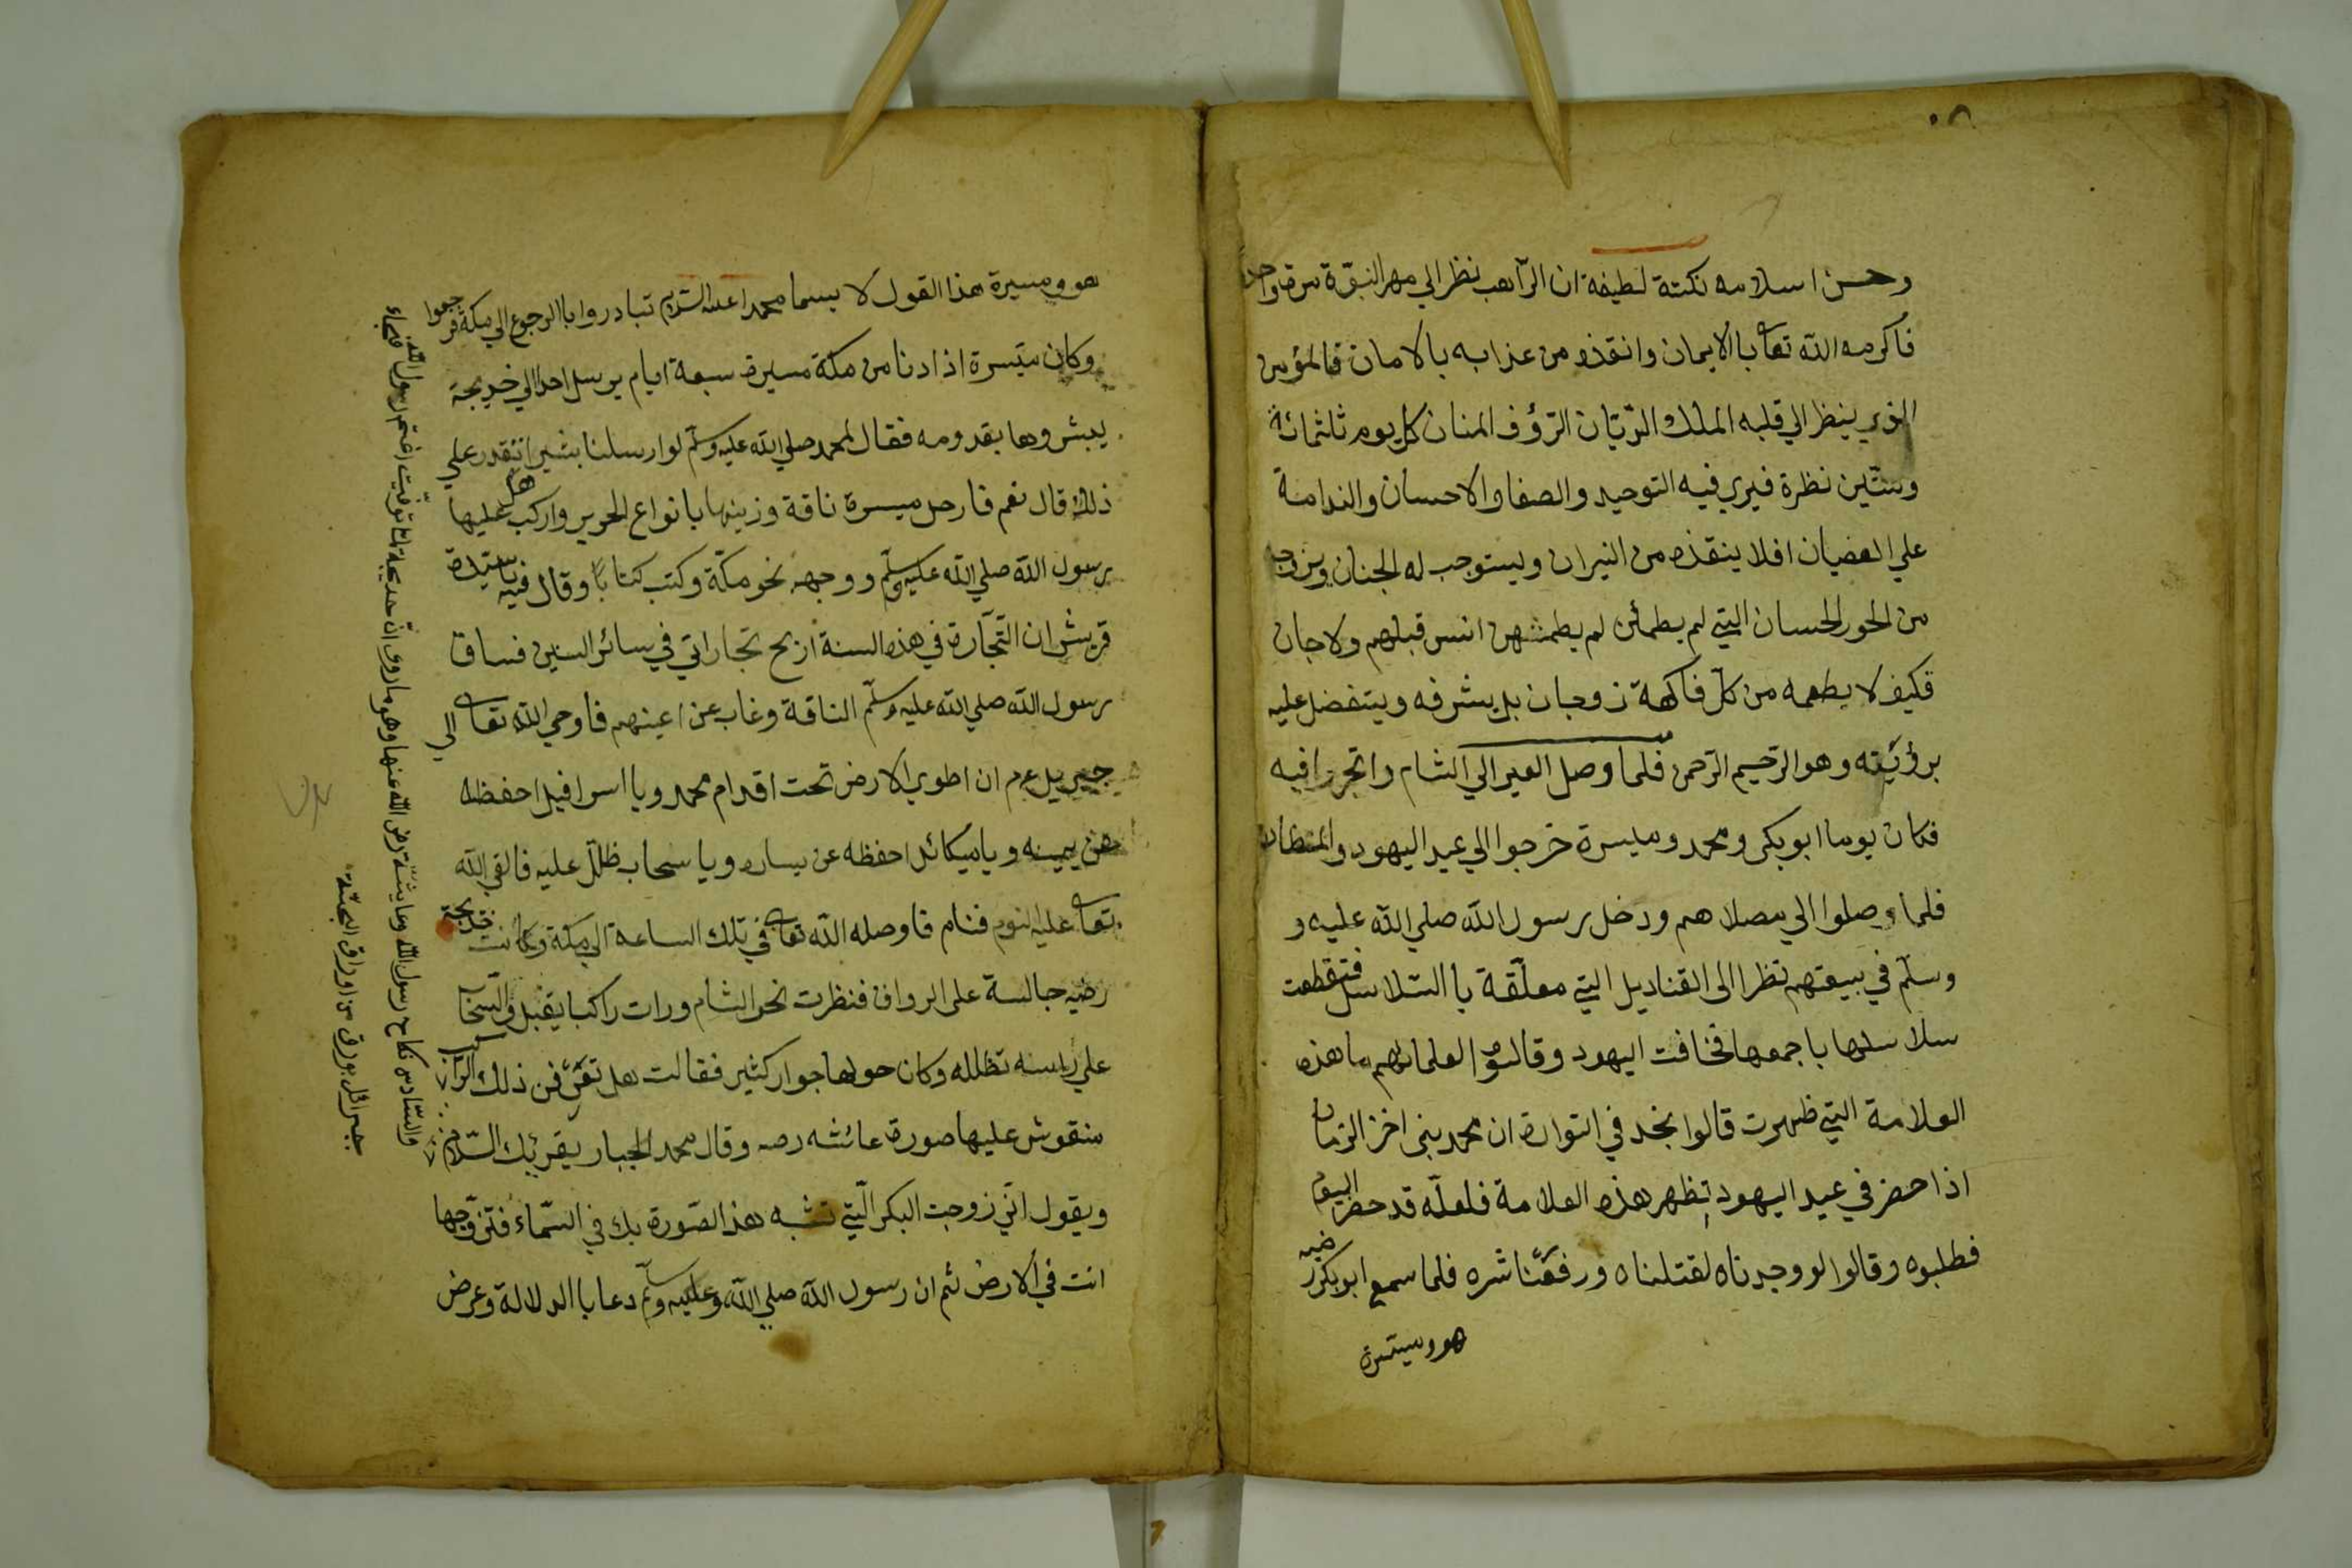 وحسن اسلامه نكتة لطيفة ان الرّاهب نظر الي مهر النبوّة مرة واحدة
فأكرمه الله تعا بالايمان وانقذه من عذابه بالامان فالمؤمن
الذي ينظر الي قلبه الملك الديّان الرّؤف المنان كل يوم ثلثمائة
وستّين نظرة فيري فيه التوحيد والصفا والاحسان والندامة
علي العصيان افلا ينقذه من النيران ويستوجب له الجنان ويزوجه
من الحور الحسان التي لم يطمئن لم يطمثهن انس قبلهم ولا جان
فكيف لا يطعمه من كلّ فاكهة زوجان بل يشرفه ويتفضل عليه
برؤيته وهو الرّحيم الرّحمن فلما وصل العير الي الشام واتجروا فيه
فكان يوما ابو بكر ومحمد وميسرة خرجوا الي عيد اليهود والنظار
فلما وصلوا الي مصلاهم ودخل رسول الله صلي الله عليه و
وسلّم في بيعتهم نظر الى القناديل التي معلّقة باالسّلاسل فتقطعت
سلاسلها باجمعها فخافت اليهود وقالوا لعلمائهم ما هذه
العلامة التي ظهرت قالوا نجد في التوراة ان محمد نبي اخر الزمان
اذا حضر في عيد اليهود تظهر هذه العلامة فلعلّه قد حضر اليوم
فطلبوه وقالوا لو وجدناه لقتلناه ورفعنا شره فلما سمع ابو بكر رضيه
هو وميسرة
هو وميسرة هذا القول لا يسما محمدا عليه السّلام تبادروا باالرجوع الي مكة فرجعوا
وكان ميسرة اذا دنا من مكة مسيرة سبعة ايام يرسل احدا الي خديجة
يبشروها بقدومه فقال لمحمد صلي الله عليه وسلّم لو ارسلنا بشيرا تقدر علي
ذلك قال نعم فارحل ميسرة ناقة وزينها بانواع الحرير واركب عليها
رسول الله صلي الله عليه وسلّم ووجهه نحو مكّة وكتب كتابًا وقال فيه يا سيّدة
قريش ان التّجّارة في هذه السنة اربح تجاراتي في سائر السنين فساق
رسول الله صلي الله عليه وسلّم الناقة وغاب عن اعينهم فاوحي الله تعا الي
جبريل عم ان اطوي الارض تحت اقدام محمد ويا اسرافيل احفظه
عن يمينه ويا ميكائل احفظه عن يساره ويا سحاب ظلّل عليه فالقي الله
تعا عليه النوم فنام فاوصله الله تعا في تلك الساعة الي مكة وكانت خديجة
رضيه جالسة على الرواق فنظرت نحو الشام ورات راكبا يقبل والسّحاب
علي راسه تظلله وكان حولها جوار كثير فقالت هل تعرفن ذلك الرّاكب
منقوش عليها صورة عائشه رضه وقال محمد الجبار يقرئك السّلام
ويقول انّي زوجت البكر الّتي تشبه هذا الصّورة بك في السّماء فتزوّجها
انت في الارض ثم ان رسول الله صلي الله عليه وسلّم دعا باالدلالة وعرض
والسّادس نكاح رسول الله وعايشة رض الله عنها وهو ما روى انّ خديجة لمّا توفّيت اغتم رسول الله فجاء
جبرائل بورق من اوراق الجنّة